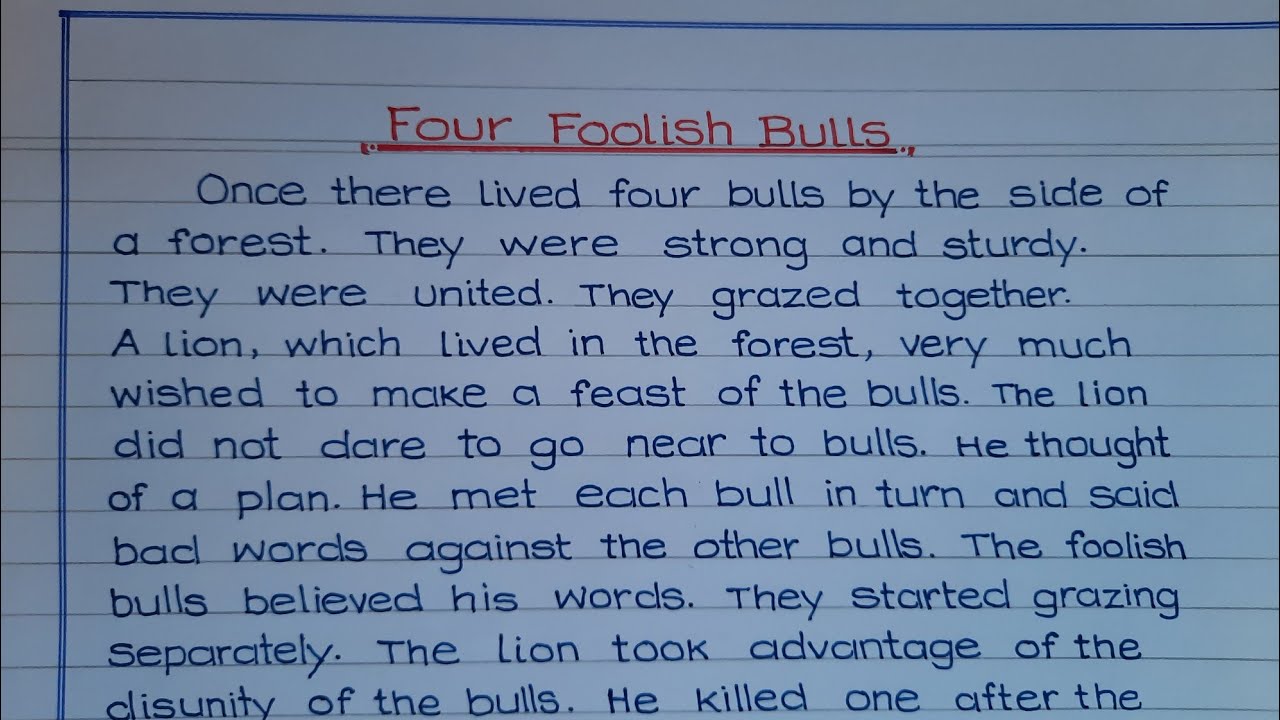 Four Foolish Bulls
Once there lived four bulls by the side of
a forest. They were strong and sturdy.
They were united. They grazed together.
A lion, which lived in the forest, very much
wished to make a feast of the bulls. The lion
did not dare to go near to bulls. He thought
of a plan. He met each bull in turn and said
bad words against the other bulls. The foolish
bulls believed his words. They started grazing
separately. The lion took advantage of the
disunity of the bulls. He killed one after the